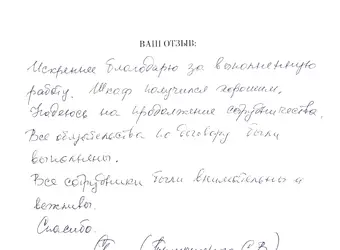 ВАШ ОТЗЫВ:
Искренне благодарю за выполненную
работу. Шкаф получился хорошим.
Надеюсь на продолжение сотрудничества.
Все обязательства по договору были
выполнены.
Все сотрудники были внимательны и
вежливы.
Спасибо.
С.В.)